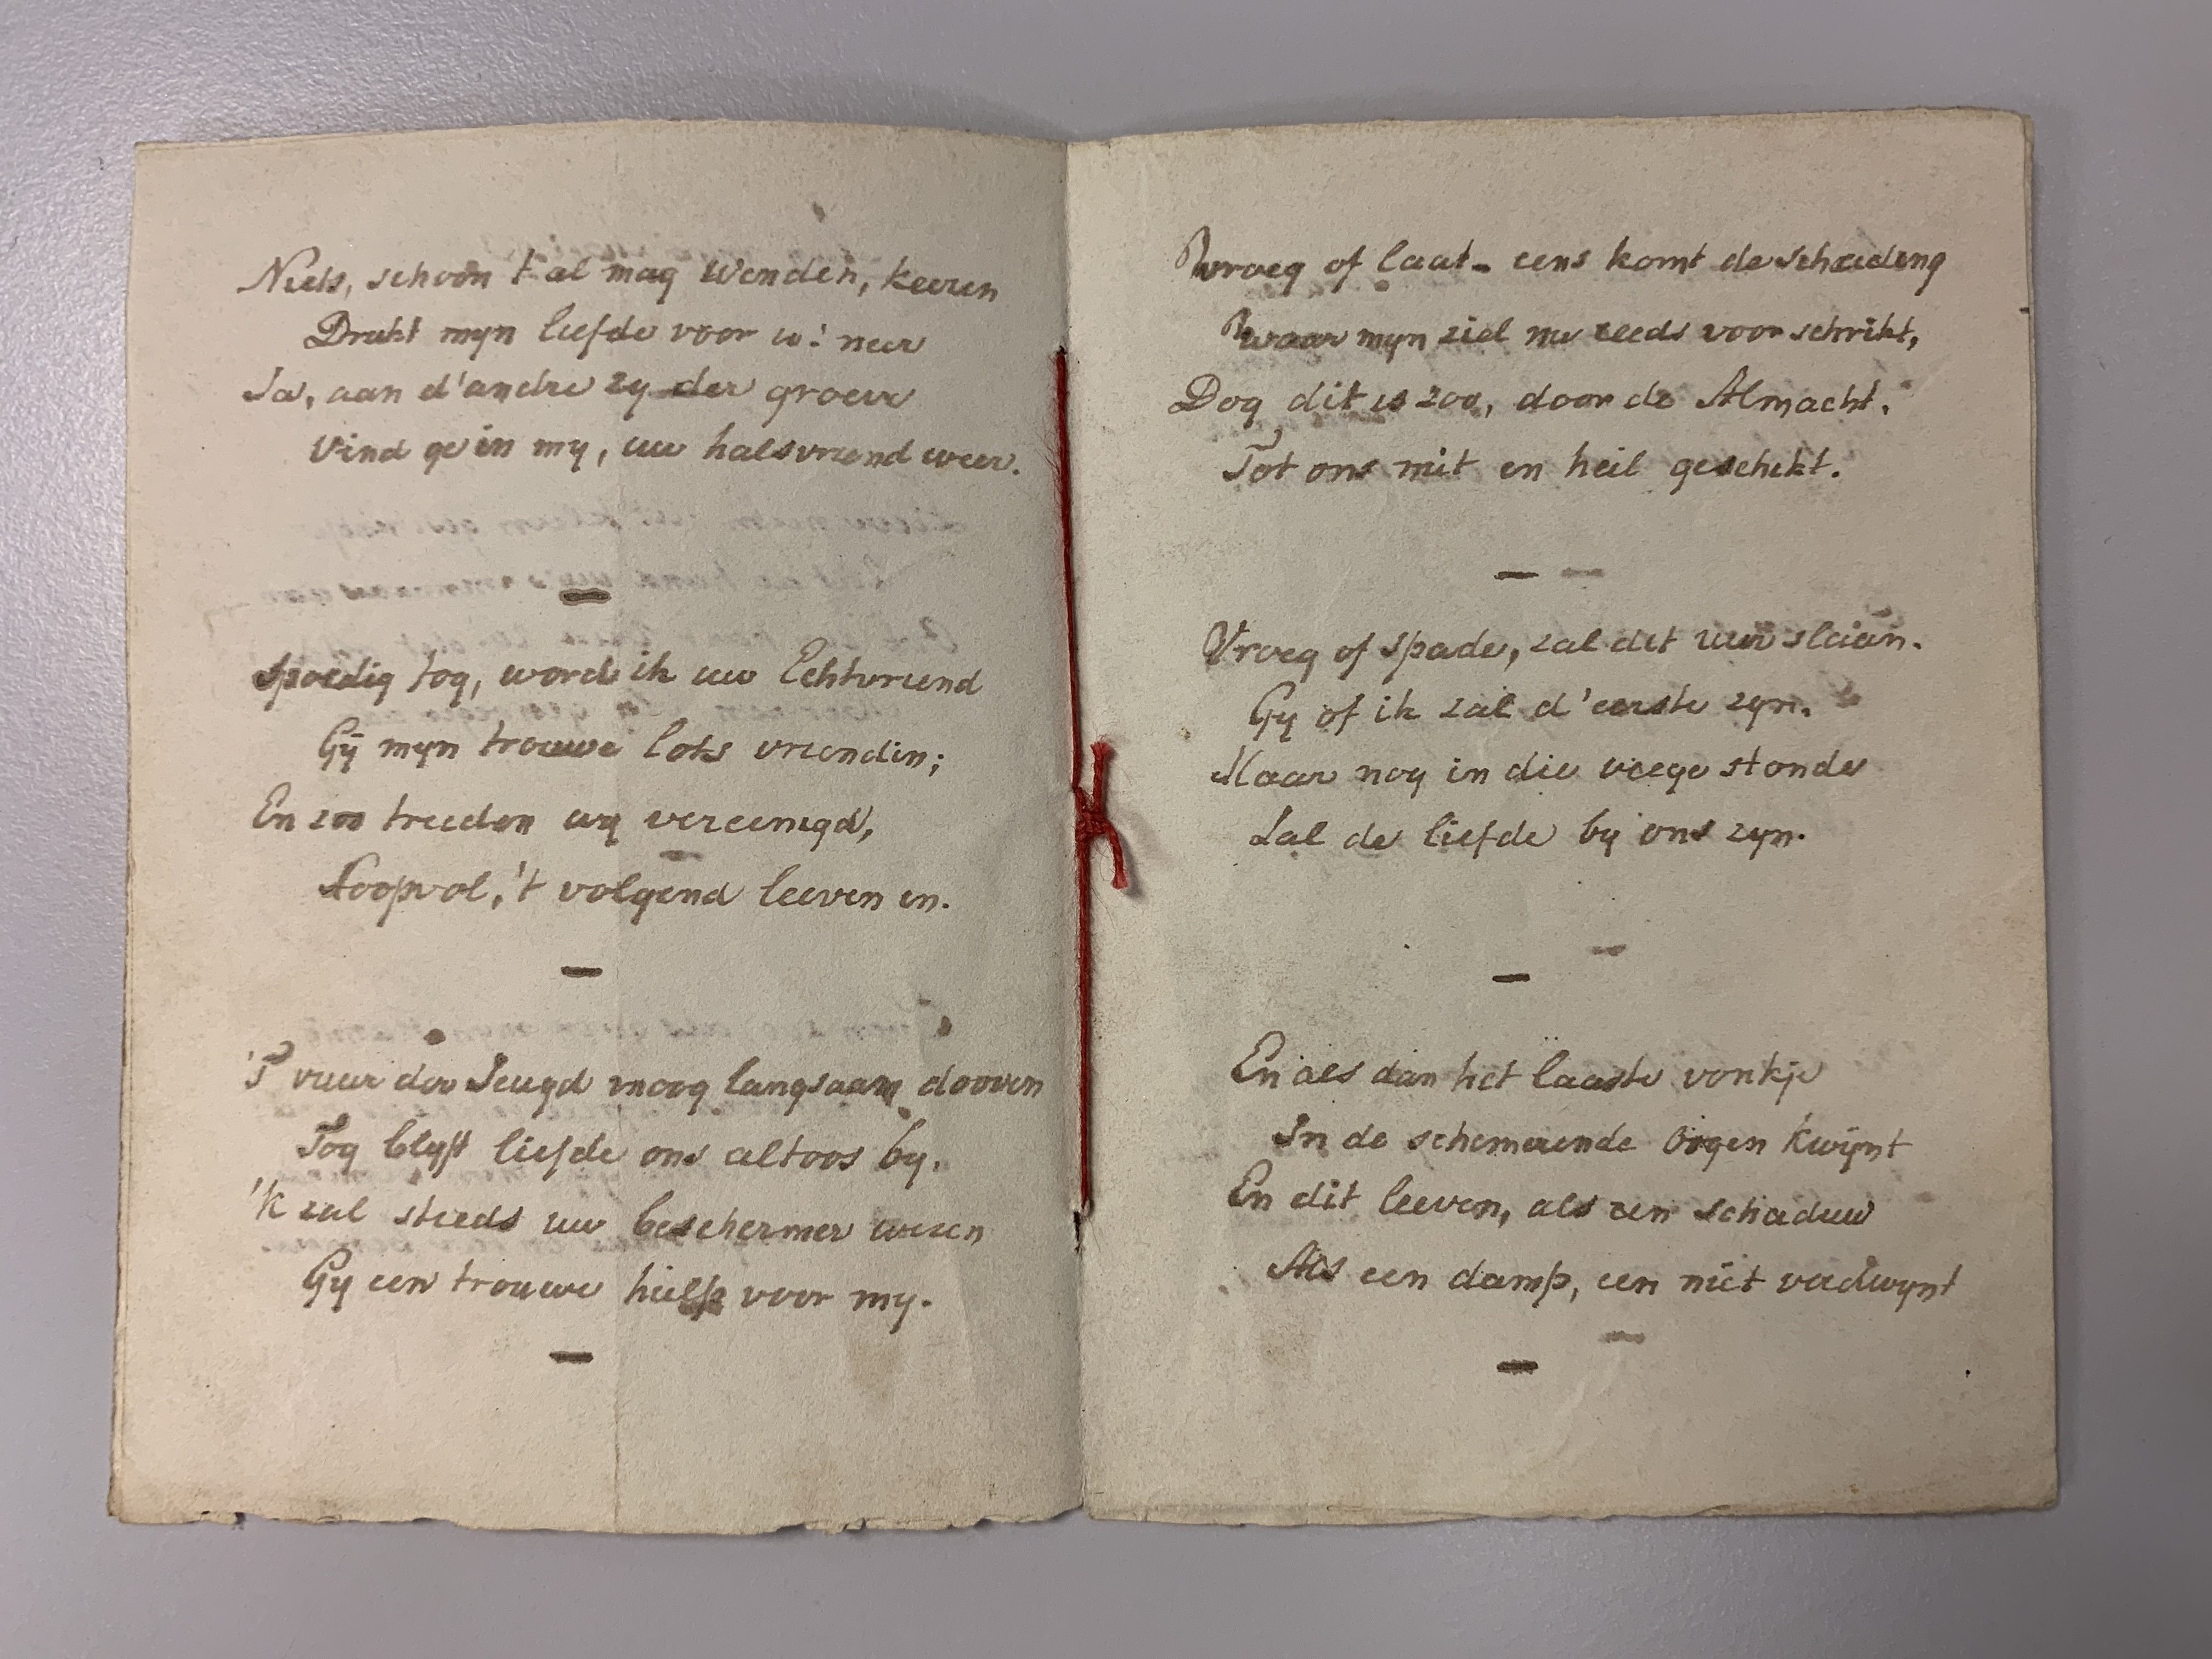 Niets, schoon t al mag Wenden, keeren
Drukt myn liefde voor u! neer
Ja, aan d'andre zy der groeve
Vind ge in my, uw halsvriend weer.
Spoedig tog, word ik uw Echtvriend
Gÿ myn trouwe lots vriendin;
En zoo treeden wy vereenigd,
Hoopvol, 't volgend leeven in.
'T vuur der Jeugd moog langsaam dooven
Tog blyft liefde ons altoos by.
'k zal steeds uw beschermer wesen
Gy een trouwe hielp voor my.
Vroeg of laat - eens komt de scheiding
Waar myn ziel nu reeds voor schrikt,
Dog dit is zoo, door de Almacht.
Tot ons nut en heil geschikt.
Vroeg of spade, zal dit uur slaan.
Gy of ik zal d'eerste zyn.
Maar nog in die veege stonde
Zal de liefde by ons zyn.
En als dan het laaste vonkje
In de schemerende oogen kwÿnt
En dit leeven, als een schaduw
Als een damp, een niet verdwynt